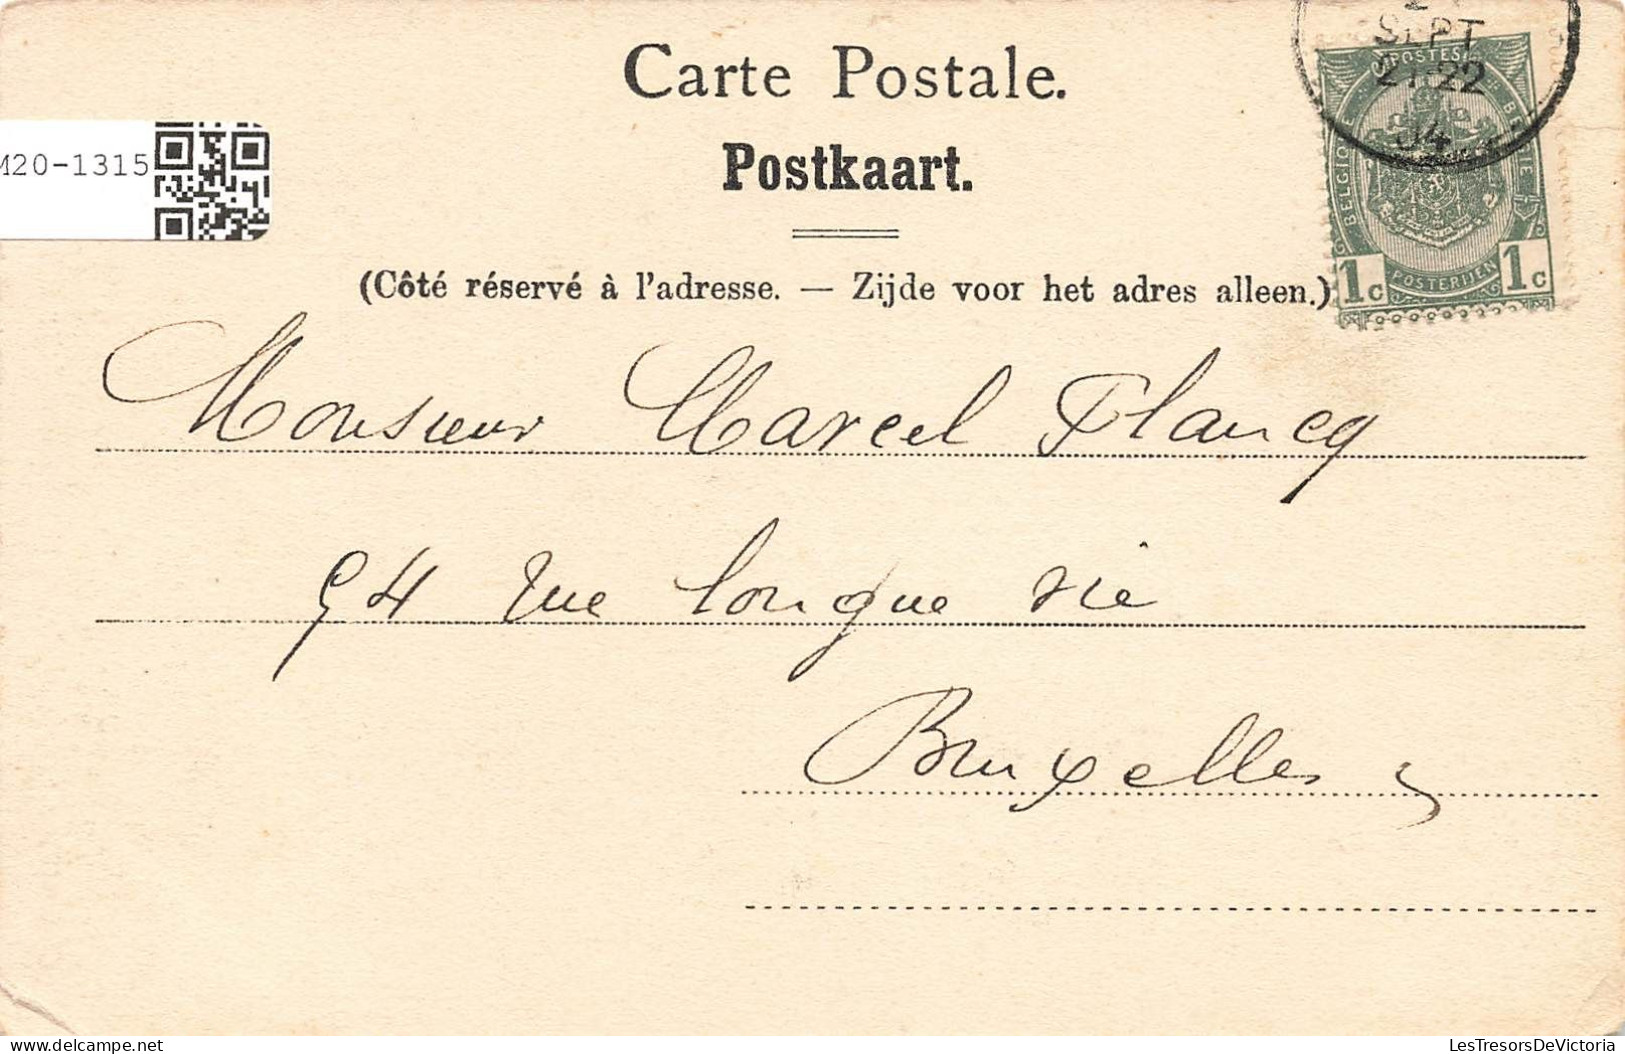 Carte Postale.
Postkaart.
(Côté réservé à l'adresse. — Zijde voor het adres alleen.)
M20-1315
SEPT
22
04
POSTES
BELGIQUE
BELGIE
POSTERIJEN
1c 1c
Monsieur Marcel Flancq
94 rue longue vie
Bruxelles
LesTresorsDeVictoria
delcampe.net